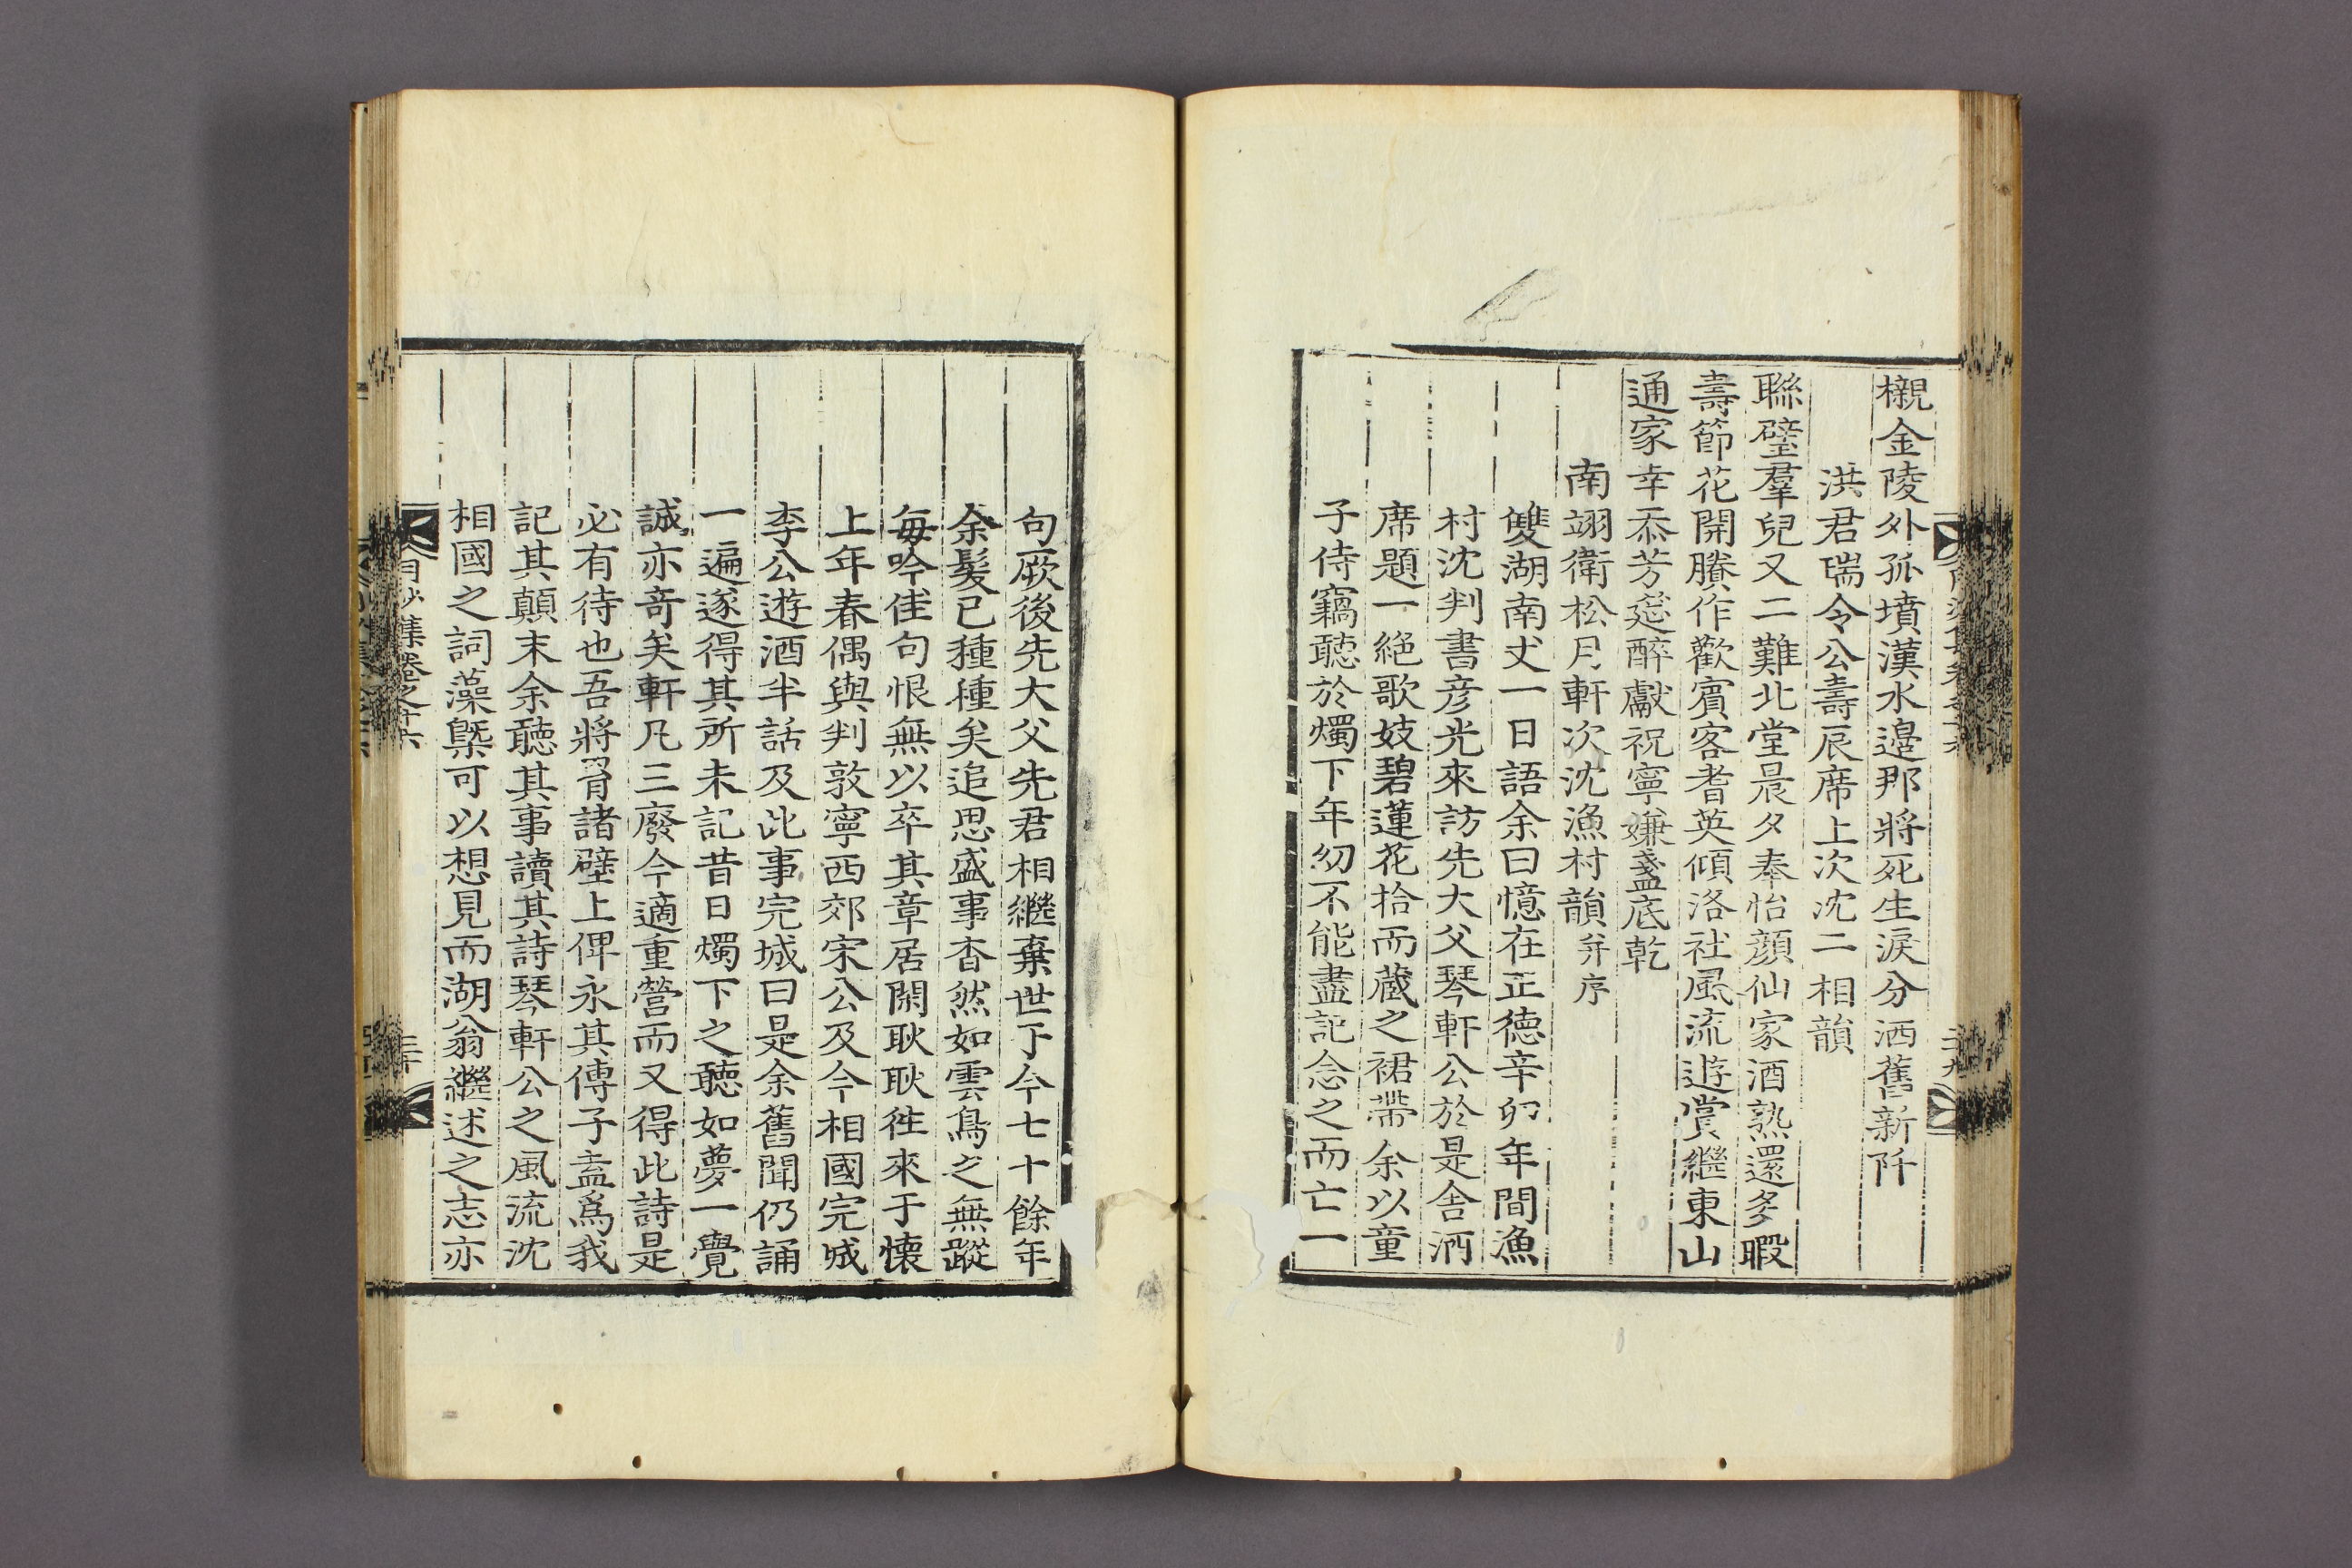 櫬金陵外孤墳漢水邉那將死生淚分洒舊新阡
洪君瑞令公壽辰席上次沈二相韻
聯璧羣兒又二難北堂晨夕奉怡顔仙家酒熟還多暇
壽節花開賸作歡賓客耆英傾洛社風流遊賞繼東山
通家幸忝芳筵醉獻祝寧嫌盞底乾
南翊衛松月軒次沈漁村韻并序
雙湖南丈一日語余曰憶在正德辛夘年間漁
村沈判書彦光來訪先大父琴軒公於是舍酒
席題一絶歌妓碧蓮花拾而蔵之裙帶余以童
子侍竊聽於燭下年幼不能盡記念之而亡一
句厥後先大父先君相繼棄世于今七十餘年
余髪已種種矣追思盛事杳然如雲鳥之無蹤
每吟佳句恨無以卒其章居閑耿耿徃來于懐
上年春偶與判敦寧西郊宋公及今相國完城
李公遊酒半話及此事完城曰是余舊聞仍誦
一遍遂得其所未記昔日燭下之聽如夢一覺
誠亦奇矣軒凡三廢今適重營而又得此詩是
必有待也吾將㸔諸壁上俾永其傳子盍爲我
記其顛末余聽其事讀其詩琴軒公之風流沈
相國之詞藻槩可以想見而湖翁繼述之志亦
集卷之十六
三十